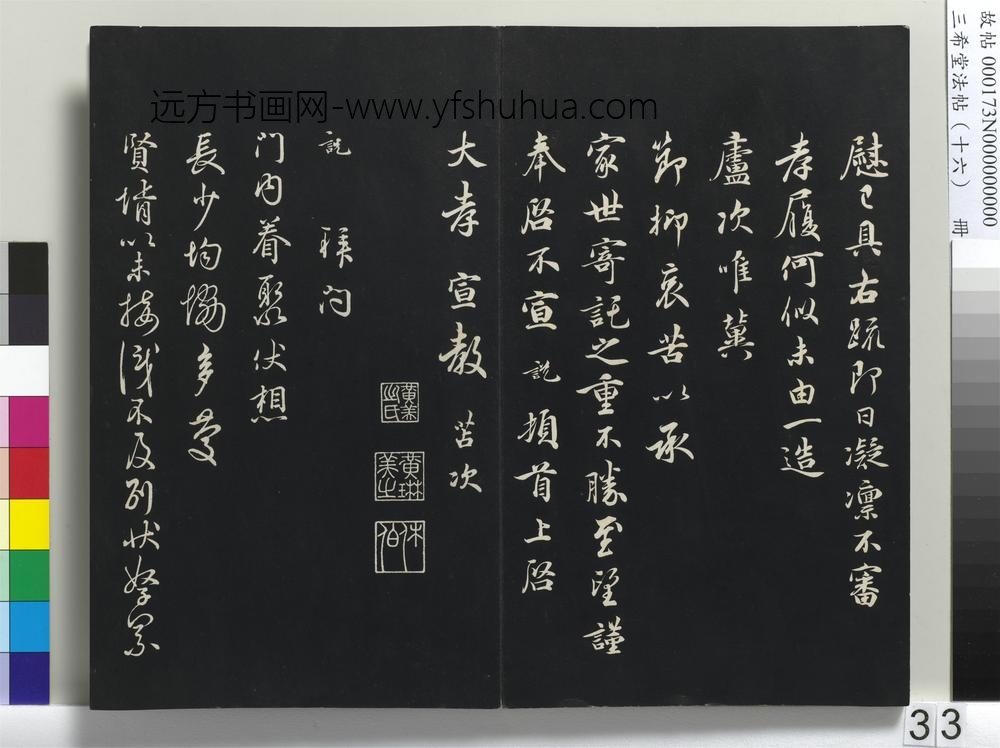 慰已具右疏即日凝凛不審
孝履何似未由一造
廬次唯冀
節抑哀苦以承
家世寄託之重不勝至望謹
奉啓不宣説頓首上啓
大孝宣教苫次
説拜问
门内眷聚伏想
長少均協多慶
賢壻以未接識不及别状孥累
黄琳美之
休伯
远方书画网-www.yfshuhua.com
故帖 000173N000000000
三希堂法帖（十六） 冊
33